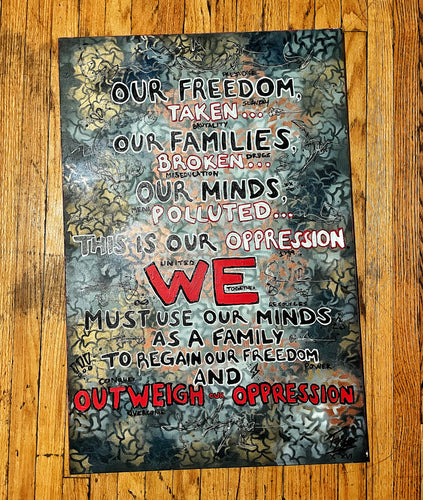 OUR FREEDOM,
SLAVERY
TAKEN...
BRUTALITY
OUR FAMILIES,
BROKEN... DRUGS
MISEDUCATION
OUR MINDS,
POLLUTED...
THIS IS OUR OPPRESSION
UNITED
WE
TOGETHER
MUST USE OUR MINDS
AS A FAMILY
TO REGAIN OUR FREEDOM
POWER
AND
CONQUER
OUTWEIGH OUR OPPRESSION
OVERCOME